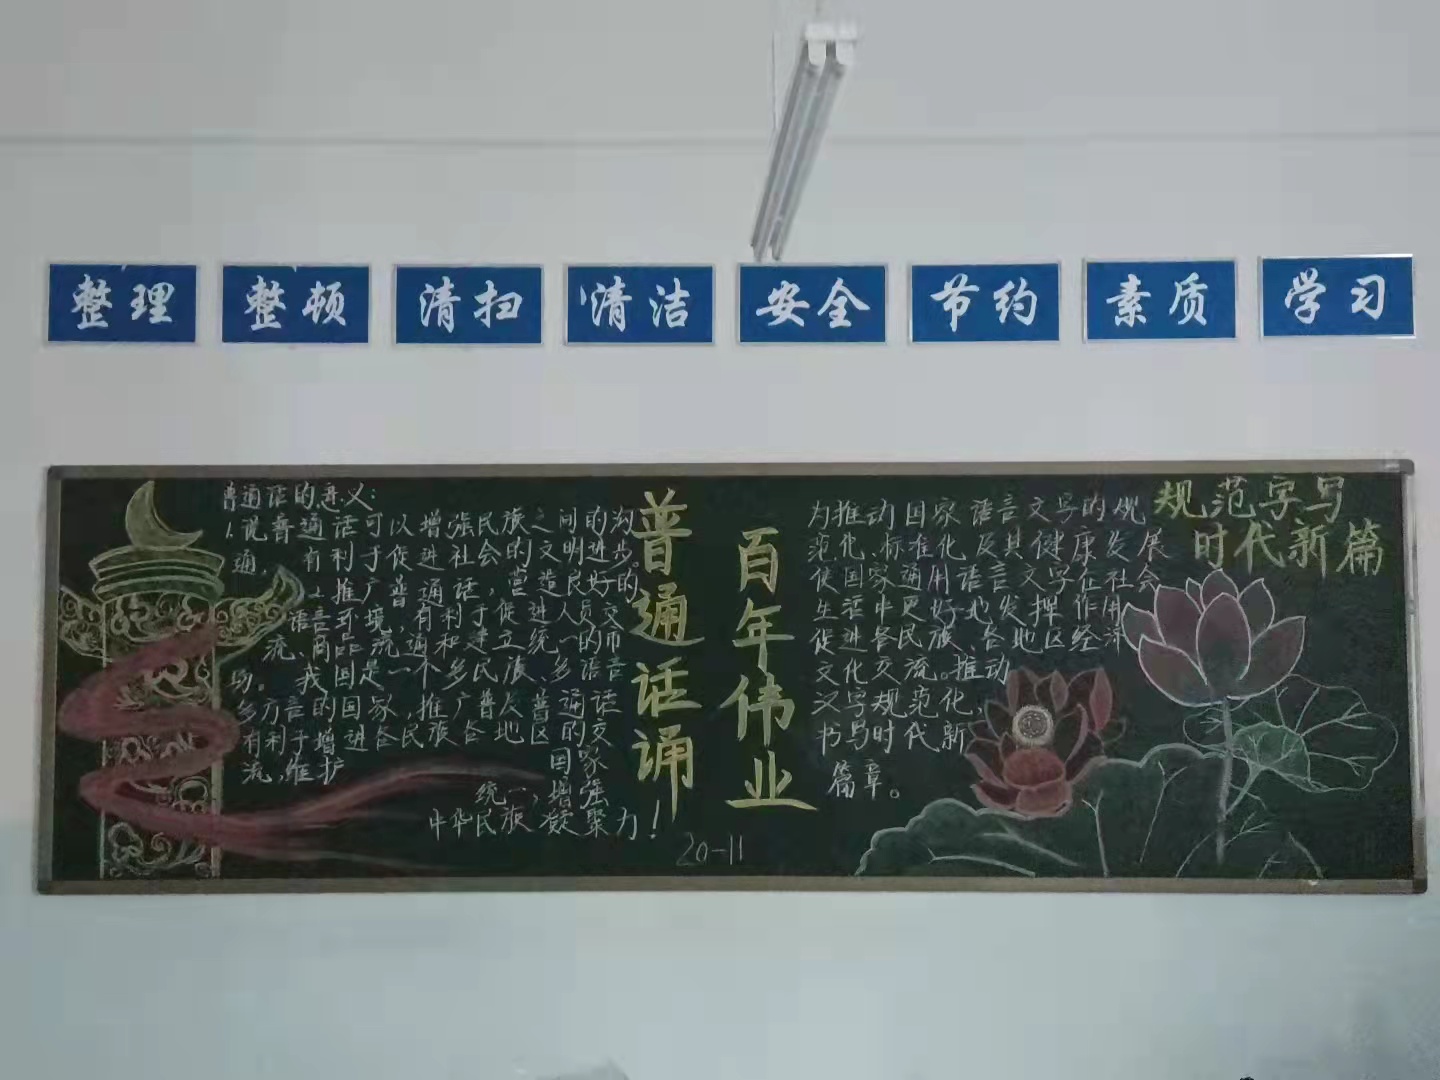 整理 整顿 清扫 清洁 安全 节约 素质 学习
普通话的意义:
1.说普通话可以增强民族之间的沟
通,有利于促进社会的文明进步。
2.推广普通话,营造良好的
语言环境,有利于促进人员交
流、商品流通和建立统一的市
场。我国是一个多民族、多语言
多方言的国家,推广普及普通话
有利于增进各民族各地区的交
流,维护国家
统一,增强
中华民族凝聚力!
普通话诵
百年伟业
20-11
为推动国家语言文字的规
范化、标准化及其健康发展
使国家通用语言文字在社会
生活中更好地发挥作用
促进各民族、各地区经济
文化交流。推动
汉字规范化,
书写时代新
篇章。
规范字写
时代新篇